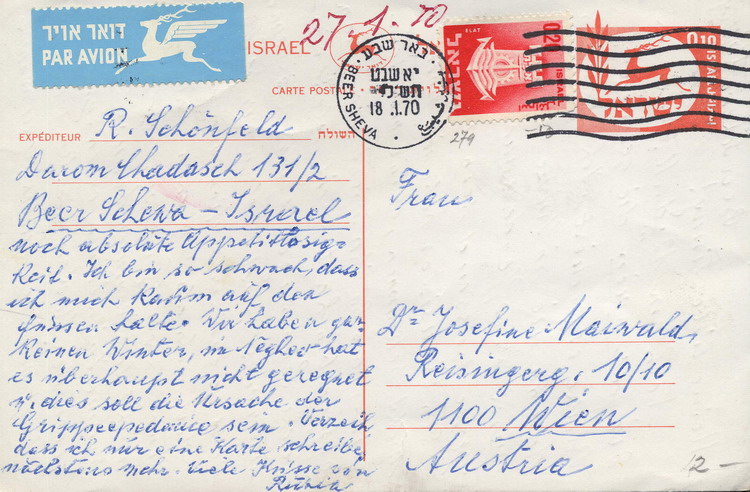 דואר אויר
PAR AVION
27.1.70
ISRAEL
CARTE POSTALE
EXPÉDITEUR
השולח
R. Schönfeld
Darom Chadasch 131/2
Beer Schewa – Israel
noch absolute Appetitlosig-
keit. Ich bin so schwach, dass
ich mich kaum auf den
Füssen halte. Wir haben gar
keinen Winter, im Neghev hat
es überhaupt nicht geregnet
u. dies soll die Ursache der
Grippeepedemie sein. Verzeih,
dass ich nur eine Karte schreibe,
nächstens mehr. Viele Küsse von
באר שבע
יא שבט
תש"ל
18.1.70
BEER SHEVA
ELAT
ישראל
ISRAEL
0.20
279
0.10
ISRAEL
ישראל
Frau
Dr. Josefine Maiwald
Reisingerg. 10/10
1100 Wien
Austria
12-